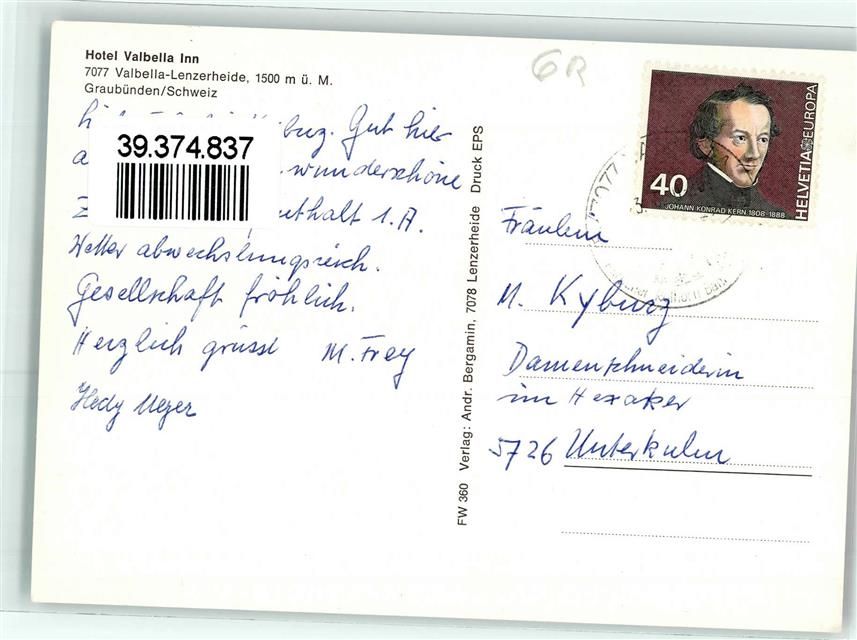 Hotel Valbella Inn
7077 Valbella-Lenzerheide, 1500 m ü. M.
Graubünden/Schweiz
Gut hier
39.374.837
wunderschöne
1. A.
Wetter abwechslungsreich.
Gesellschaft fröhlich.
Herzlich grüsst M. Frey
Hedy Meyer
FW 360 Verlag: Andr. Bergamin, 7078 Lenzerheide Druck EPS
GR
40
JOHANN KONRAD KERN 1808-1888
HELVETIA EUROPA
7077
Fräulein
M. Kyburz
Damenschneiderin
im Hexaker
5726 Unterkulm